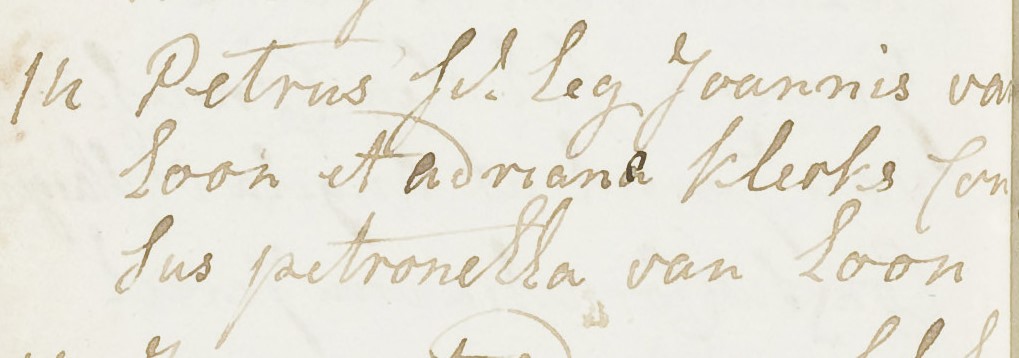 14 Petrus fil. leg Joannis van
Loon et adriana Klerks Con
Sus petronella van Loon